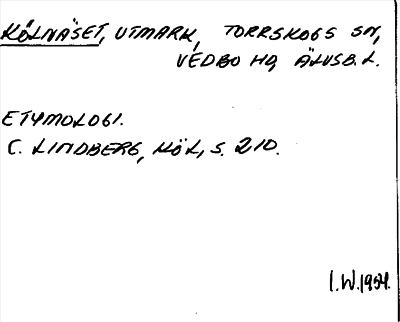 KÖLNÄSET, UTMARK, TORRSKOGS SN,
VEDBO HD, ÄLVSB. L.
ETYMOLOGI.
C. LINDBERG, KÖL, S. 210.
I. W. 1954.